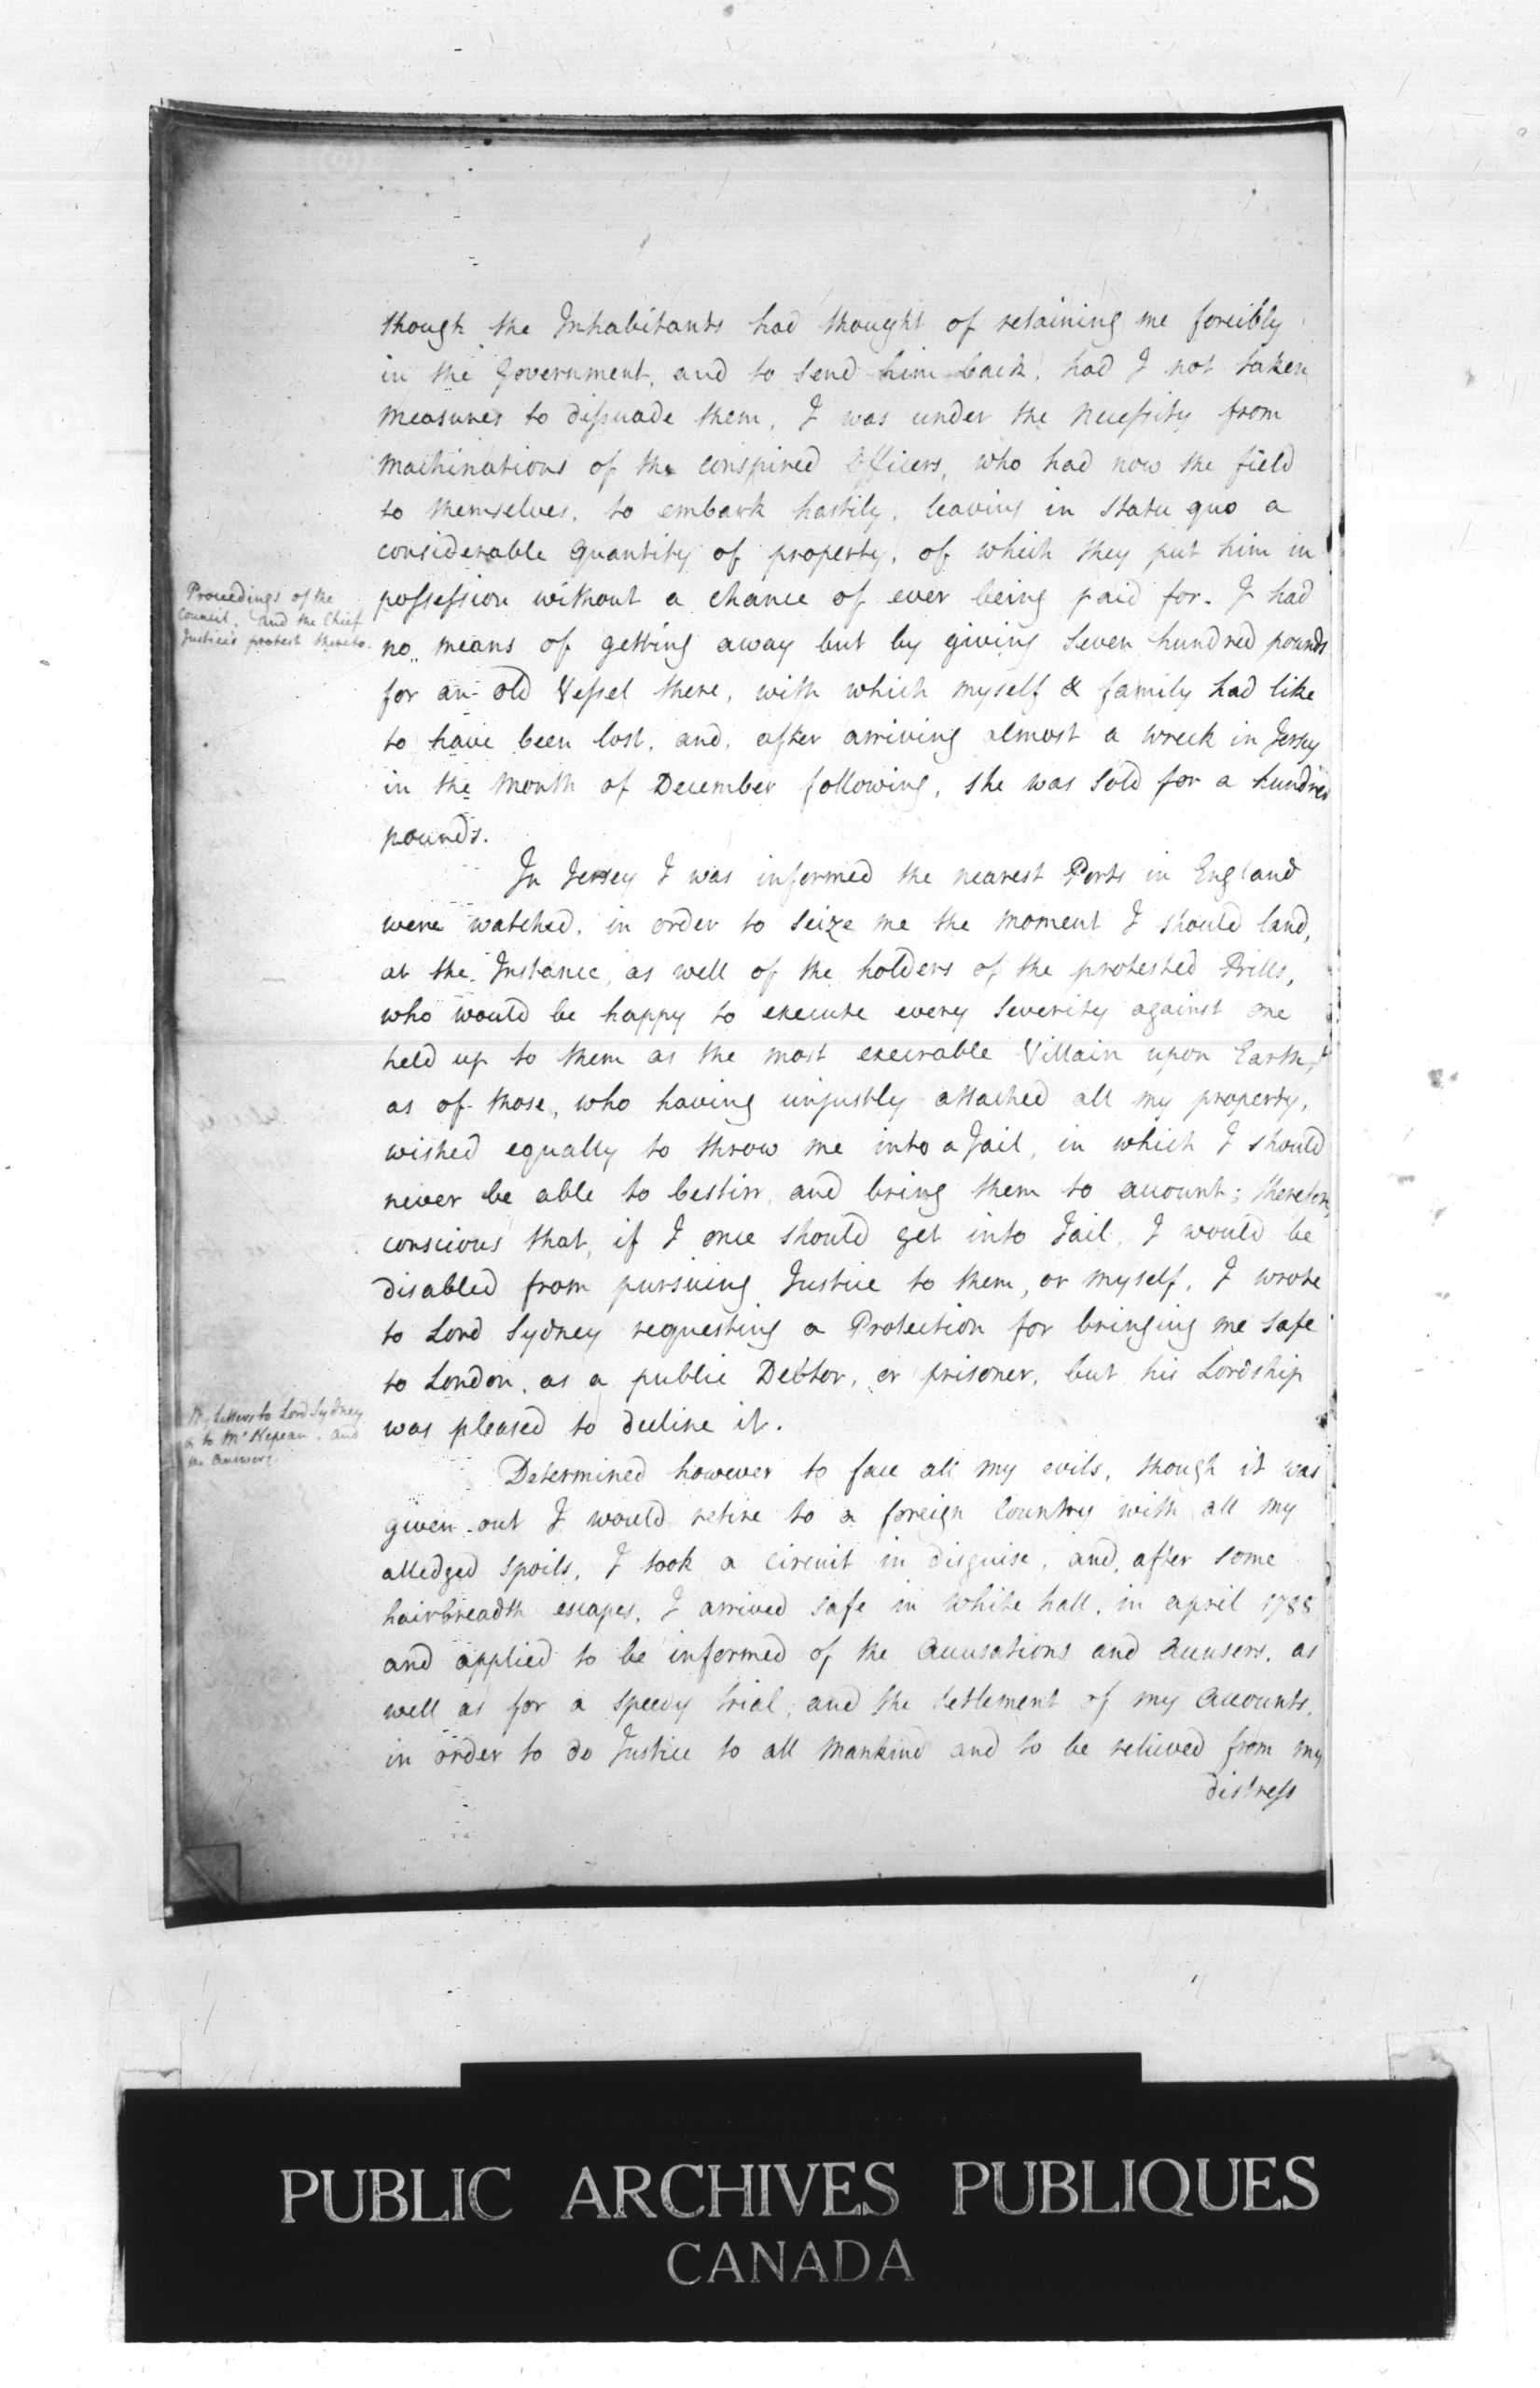 though the Inhabitants had thought of retaining me forcibly
in the Government, and to send him back, had I not taken
measures to dissuade them, I was under the Necessity from
machinations of the conspired Officers, who had now the field
to themselves, to embark hastily, leaving in Statu quo a
considerable Quantity of property, of which they put him in
Proceedings of the
Council, and the Chief
Justice's protest thereto.
possession without a chance of ever being paid for. I had
no means of getting away but by giving Seven hundred pounds
for an old Vessel there, with which myself & family had like
to have been lost, and, after arriving almost a wreck in Jersey
in the Month of December following, she was Sold for a hundred
pounds.
In Jersey I was informed the nearest Ports in England
were watched, in order to Seize me the moment I should land,
at the Instance, as well of the holders of the protested Bills,
who would be happy to execute every Severity against one
held up to them as the most execrable Villain upon Earth,
as of those, who having unjustly attached all my property,
wished equally to throw me into a Jail, in which I should
never be able to bestirr, and bring them to account; therefore,
conscious that, if I once should get into Jail, I would be
disabled from pursuing Justice to them, or myself, I wrote
to Lord Sydney requesting a Protection for bringing me Safe
to London, as a public Debtor, or prisoner, but his Lordship
My Letters to Lord Sydney
& to Mr Nepean, and
the Answers.
was pleased to decline it.
Determined however to face all my evils, though it was
given out I would retire to a foreign Country with all my
alledged Spoils, I took a circuit in disguise, and, after some
hairbreadth escapes, I arrived safe in White hall, in april 1788
and applied to be informed of the Accusations and Accusers, as
well as for a Speedy trial, and the Setlement of my Accounts,
in order to do Justice to all Mankind and to be relieved from my
distress
PUBLIC ARCHIVES PUBLIQUES
CANADA